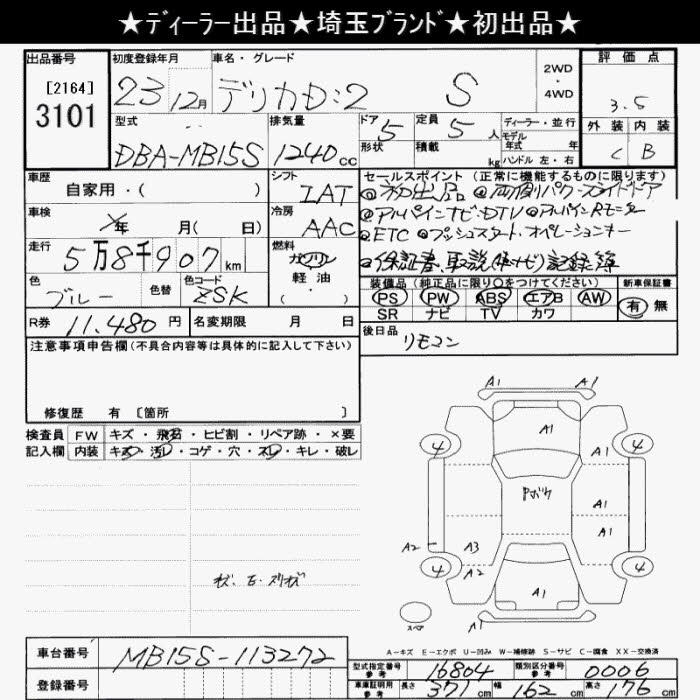 ★ディーラー出品★埼玉ブランド★初出品★
出品番号
[2164]
3101
初度登録年月
23 12月
車名・グレード
デリカD:2 S
2WD
・
4WD
評価点
3.5
外装 内装
C B
型式
DBA-MB15S
排気量
1240cc
ドア
5
形状
定員
5人
積載
kg
ディーラー・並行
モデル
年式 年
ハンドル 左・右
車歴
自家用・( )
シフト
IAT
車検
年 月( 日)
冷房
AAC
走行
5万8千907km
燃料
ガソリン
軽油
( ・ )
色
ブルー
色替
色コード
ZSK
R券 11,480円
名変期限 月 日
セールスポイント(正常に機能するものに限ります)
◎初出品 ◎両側パワースライドドア
◎アルパインナビ・DTV ◎アルパインRモニター
◎ETC ◎プッシュスタート・オペレーションキー
◎保証書、取説(車・ナビ)記録簿
装備品(純正品に限り○をつけてください)
PS PW ABS エアB AW
SR ナビ TV カワ
新車保証書
有 無
後日品
リモコン
注意事項申告欄(不具合内容等は具体的に記入して下さい)
修復歴 有 [箇所 ]
検査員
記入欄
FW キズ・飛石・ヒビ割・リペア跡・×要
内装 キズ・汚レ・コゲ・穴・スレ・キレ・破レ
A1 A1
A1
4 4
A1
Pボケ
A1
A1
A2 A3
4 A2 4
A1
スペア
A1
A-キズ E-エクボ U-凹み W-補修跡 S-サビ C-腐食 XX-交換済
車台番号 MB15S-113272
登録番号
型式指定番号
参考
16804
類別区分番号
参考
0006
車庫証明用
参考
長さ 371cm 幅 162cm 高さ 176cm